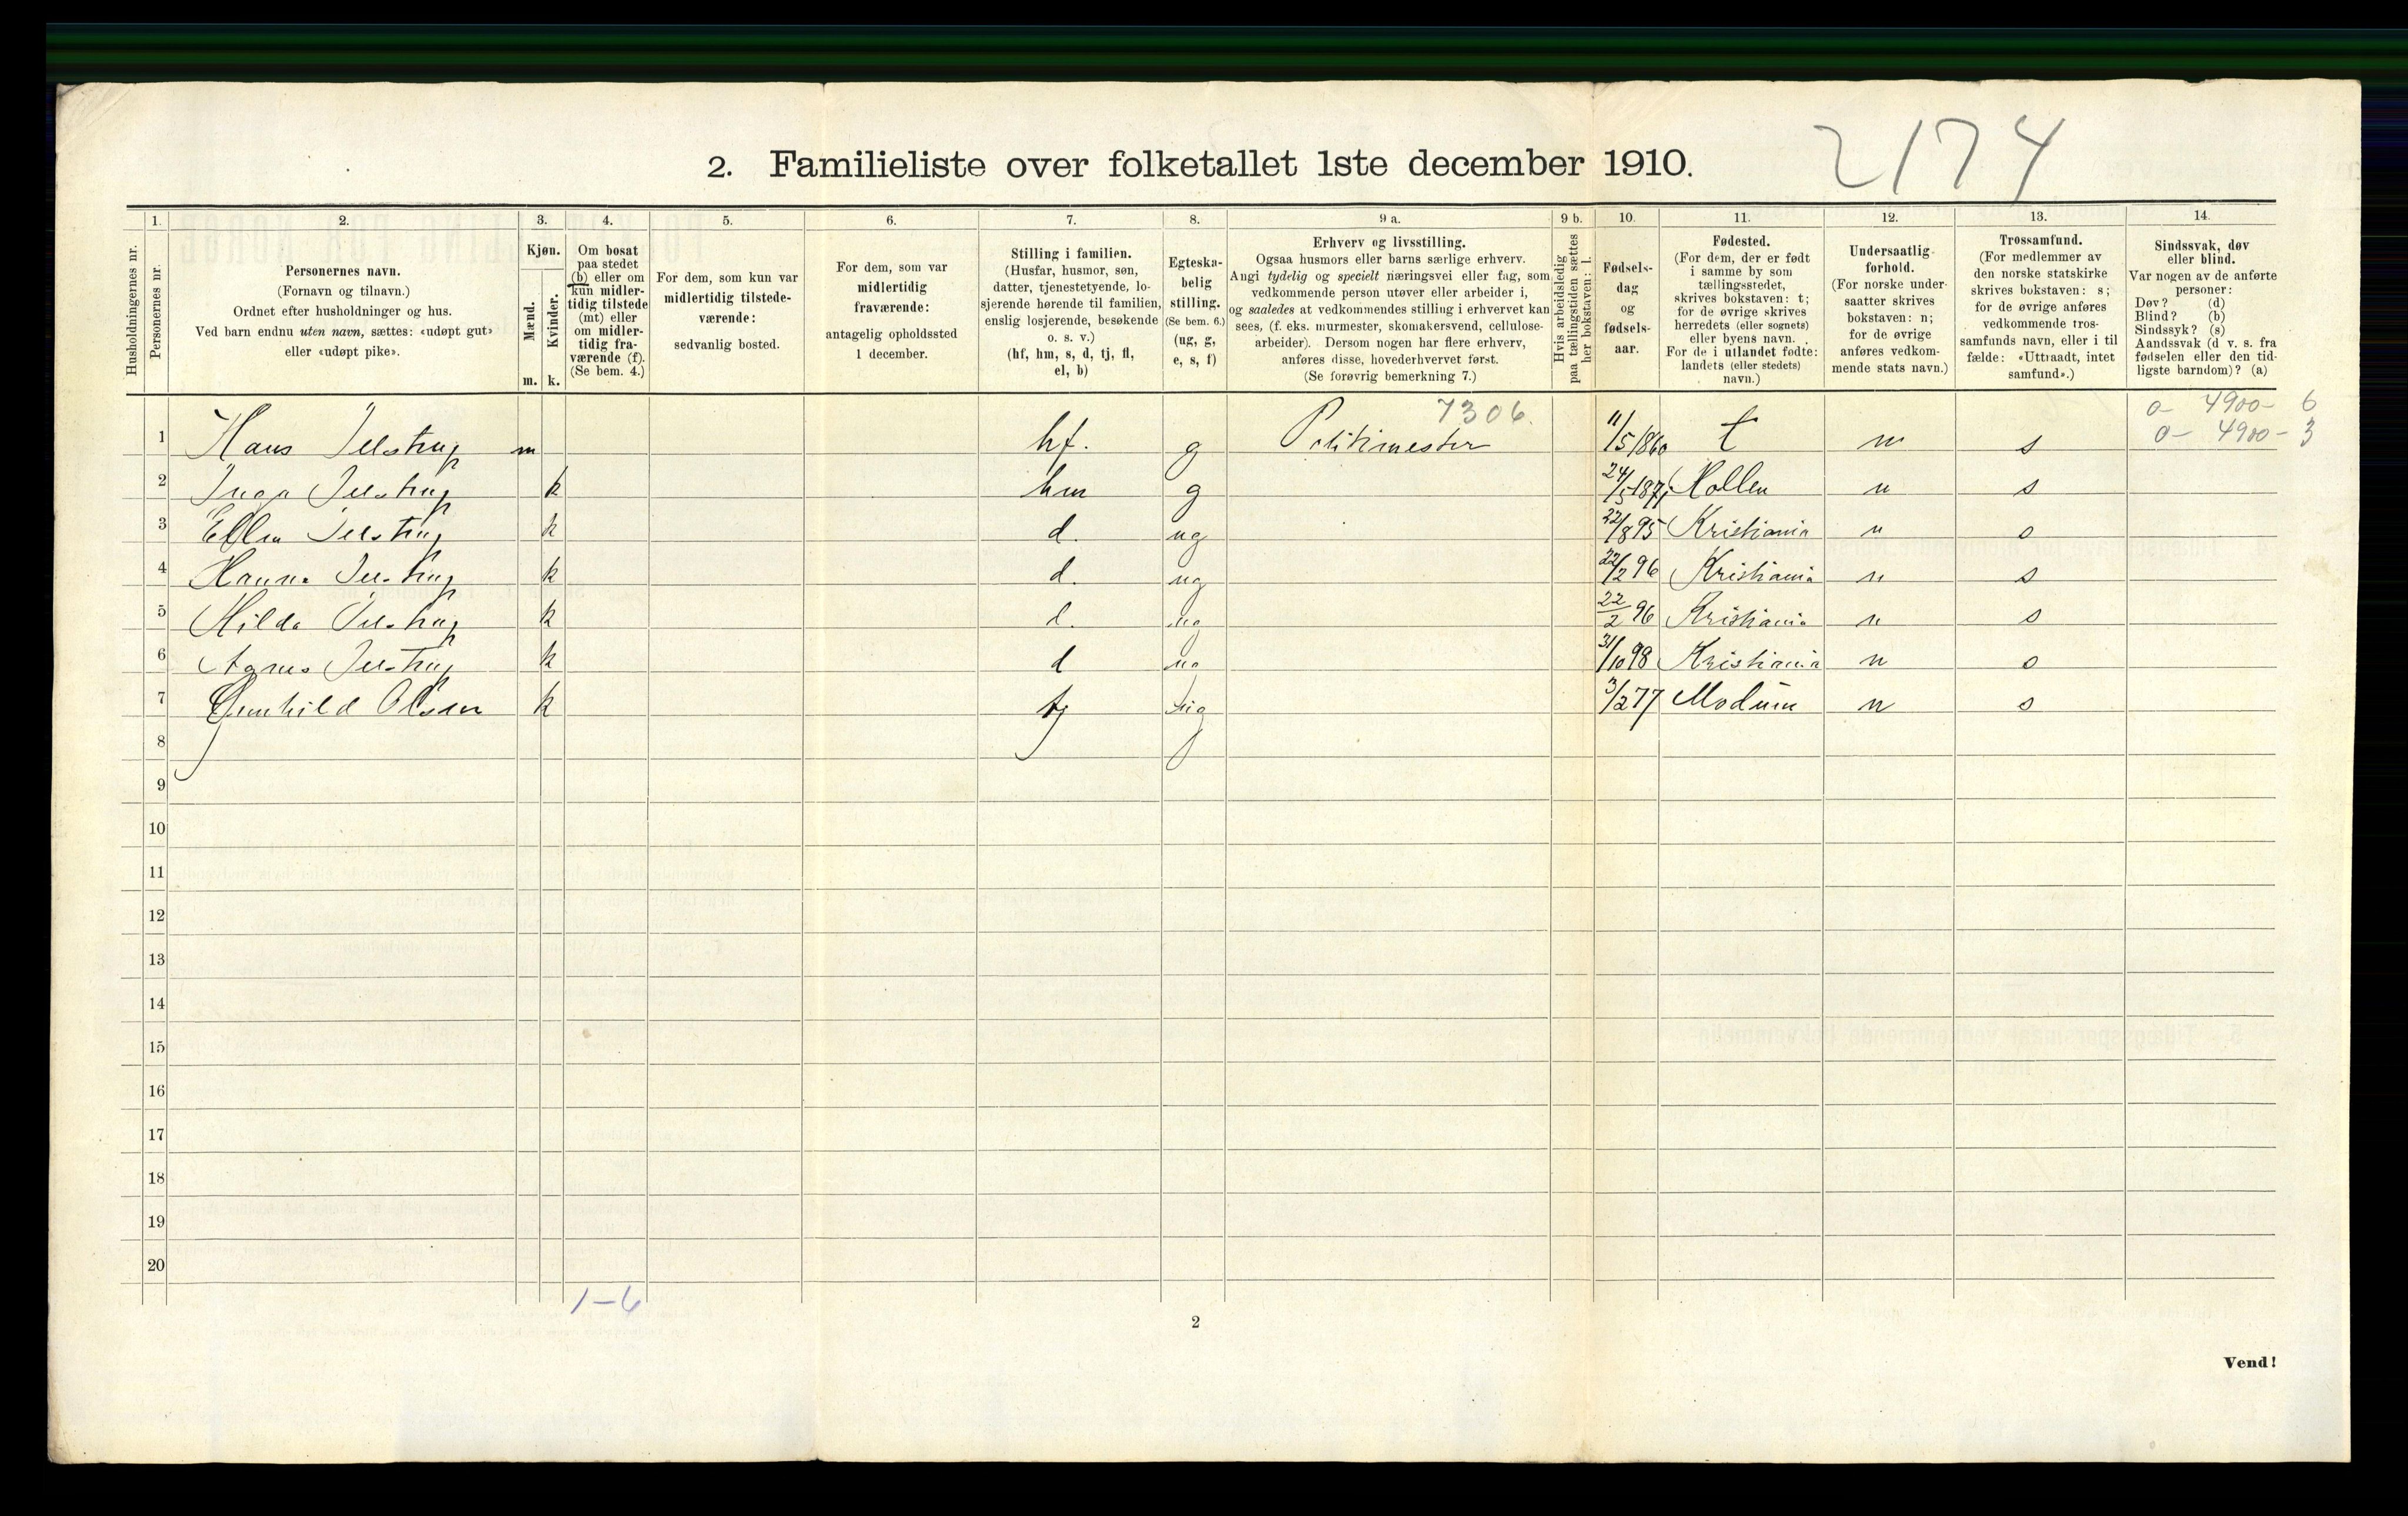 2174
2. Familieliste over folketallet 1ste december 1910.
1. 2. 3. 4. 5. 6. 7. 8. 9 a. 9 b. 10. 11. 12. 13. 14.
Husholdningernes nr.
Personernes nr.
Personernes navn.
(Fornavn og tilnavn.)
Ordnet efter husholdninger og hus.
Ved barn endnu uten navn, sættes: «udøpt gut»
eller «udøpt pike».
Kjøn.
Mænd.
Kvinder.
m. k.
Om bosat
paa stedet
(b) eller om
kun midler-
tidig tilstede
(mt) eller
om midler-
tidig fra-
værende (f).
(Se bem. 4.)
For dem, som kun var
midlertidig tilstede-
værende:
sedvanlig bosted.
For dem, som var
midlertidig
fraværende:
antagelig opholdssted
1 december.
Stilling i familien.
(Husfar, husmor, søn,
datter, tjenestetyende, lo-
sjerende hørende til familien,
enslig losjerende, besøkende
o. s. v.)
(hf, hm, s, d, tj, fl,
el, b)
Egteska-
belig
stilling.
(Se bem. 6.)
(ug, g,
e, s, f)
Erhverv og livsstilling.
Ogsaa husmors eller barns særlige erhverv.
Angi tydelig og specielt næringsvei eller fag, som
vedkommende person utøver eller arbeider i,
og saaledes at vedkommendes stilling i erhvervet kan
sees, (f. eks. murmester, skomakersvend, cellulose-
arbeider). Dersom nogen har flere erhverv,
anføres disse, hovederhvervet først.
(Se forøvrig bemerkning 7.)
Hvis arbeidsledig
paa tællingstiden sættes
her bokstaven: l.
Fødsels-
dag
og
fødsels-
aar.
Fødested.
(For dem, der er født
i samme by som
tællingsstedet,
skrives bokstaven: t;
for de øvrige skrives
herredets (eller sognets)
eller byens navn.
For de i utlandet fødte:
landets (eller stedets)
navn.)
Undersaatlig
forhold.
(For norske under-
saatter skrives
bokstaven: n;
for de øvrige
anføres vedkom-
mende stats navn.)
Trossamfund.
(For medlemmer av
den norske statskirke
skrives bokstaven: s;
for de øvrige anføres
vedkommende tros-
samfunds navn, eller i til
fælde: «Uttraadt, intet
samfund».)
Sindssvak, døv
eller blind.
Var nogen av de anførte
personer:
Døv? (d)
Blind? (b)
Sindssyk? (s)
Aandssvak (d v. s. fra
fødselen eller den tid-
ligste barndom)? (a)
7306.
0- 4900- 6
0- 4900- 3
1 Hans Jelstrup m hf. g Politimester 11/5 1860 t n s
2 Inga Jelstrup k hm g 24/5 1871 Hollen n s
3 Ellen Jelstrup k d. ug 22/8 95 Kristiania n s
4 Hanna Jelstrup k d. ug 22/2 96 Kristiania n s
5 Hilda Jelstrup k d. ug 22/2 96 Kristiania n s
6 Agnes Jelstrup k d ug 31/10 98 Kristiania n s
7 Gunhild Olsen k tj ug 3/2 77 Modum n s
8
9
10
11
12
13
14
15
16
17
18
19
20
1-6
2
Vend!